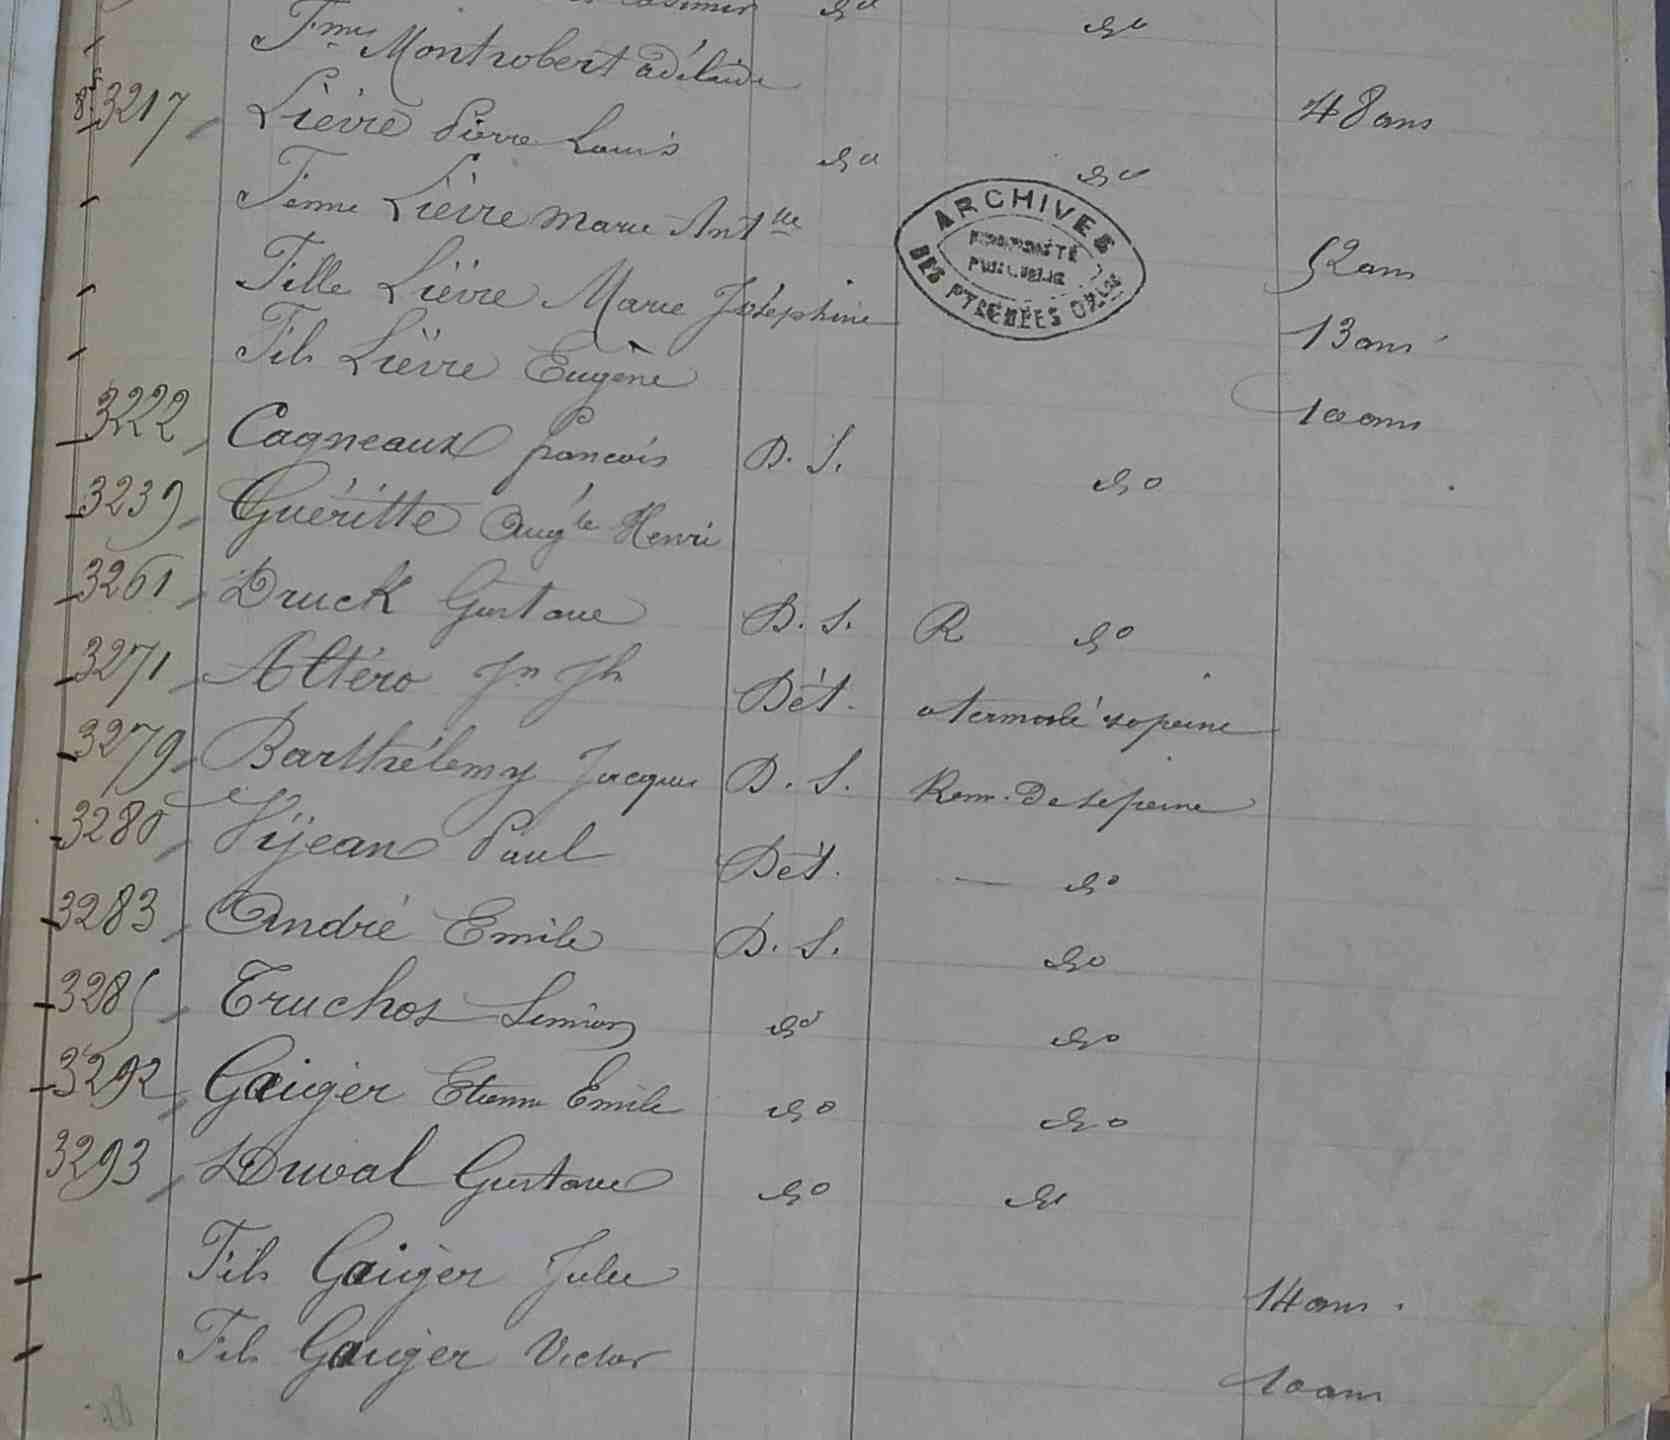 dº dº
Fme Montrobert adélaide 48 ans
3217 Lièvre Pierre Louis dº dº
Femme Lièvre Marie Antlle 52 ans
ARCHIVES
PROPRIÉTÉ
PUBLIQUE
DES PYRÉNÉES ORLES
Fille Lièvre Marie Joséphine 13 ans
Fils Lièvre Eugène 10 ans
3222 Cagneaux françois D. S. dº
3239 Guéritte Augte Henri
3261 Druck Gustave D. S. R dº
3271 Altéro Jn Jh Dét. a terminé sa peine
3279 Barthélemy Jacques D. S. Rem. de sa peine
3280 Vijean Paul Dét. — dº
3283 André Emile D. S. dº
3285 Truchot Simion dº dº
3292 Gaiger Etienne Emile dº dº
3293 Duval Gustave dº dº
Fils Gaiger Jules 14 ans
Fils Gaiger Victor 10 ans